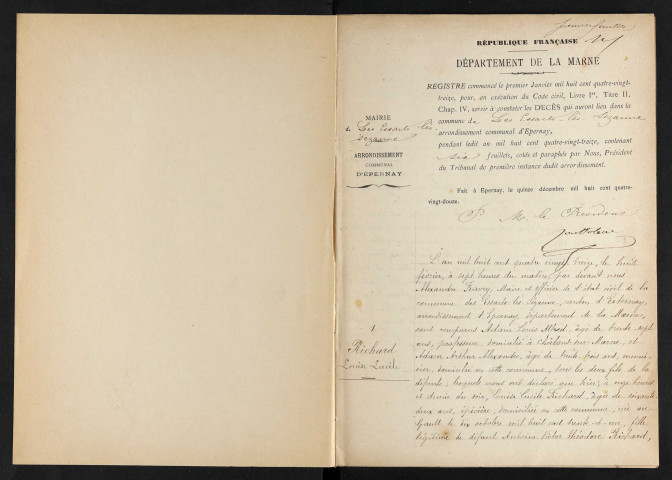 premier feuillet
RÉPUBLIQUE FRANÇAISE
DÉPARTEMENT DE LA MARNE
REGISTRE commencé le premier Janvier mil huit cent quatre-vingt-
treize, pour, en exécution du Code civil, Livre Ier, Titre II,
Chap. IV, servir à constater les DÉCÈS qui auront lieu dans la
commune de Les Essarts-les-Sézanne
arrondissement communal d'Épernay,
pendant ledit an mil huit cent quatre-vingt-treize, contenant
six feuillets, cotés et paraphés par Nous, Président
du Tribunal de première instance dudit arrondissement.
Fait à Epernay, le quinze décembre mil huit cent quatre-
vingt-douze.
MAIRIE
de Les Essarts-les-
Sézanne
ARRONDISSEMENT
COMMUNAL
D'ÉPERNAY
P. M. le Président
L'an mil huit cent quatre vingt treize, le huit
février, à sept heures du matin, par devant nous
Alexandre Maire et officier de l'état civil de la
commune des Essarts-les-Sézanne, canton d'Esternay,
arrondissement d'Epernay, département de la Marne,
sont comparus Adam Louis Alfred, âgé de trente sept
ans, professeur, domicilié à Châlons-sur-Marne, et
Adam Arthur Alexandre, âgé de trente trois ans, menui-
sier, domicilié en cette commune, tous les deux fils de la
défunte; lesquels nous ont déclaré que hier, à onze heures
et demie du soir, Louise Lucile Richard, âgée de soixante
deux ans, épicière, domiciliée en cette commune, née au
Gault le dix octobre mil huit cent trente-et-un, fille
légitime de défunt Victor Théodore Richard,
1
Richard
Louise Lucile